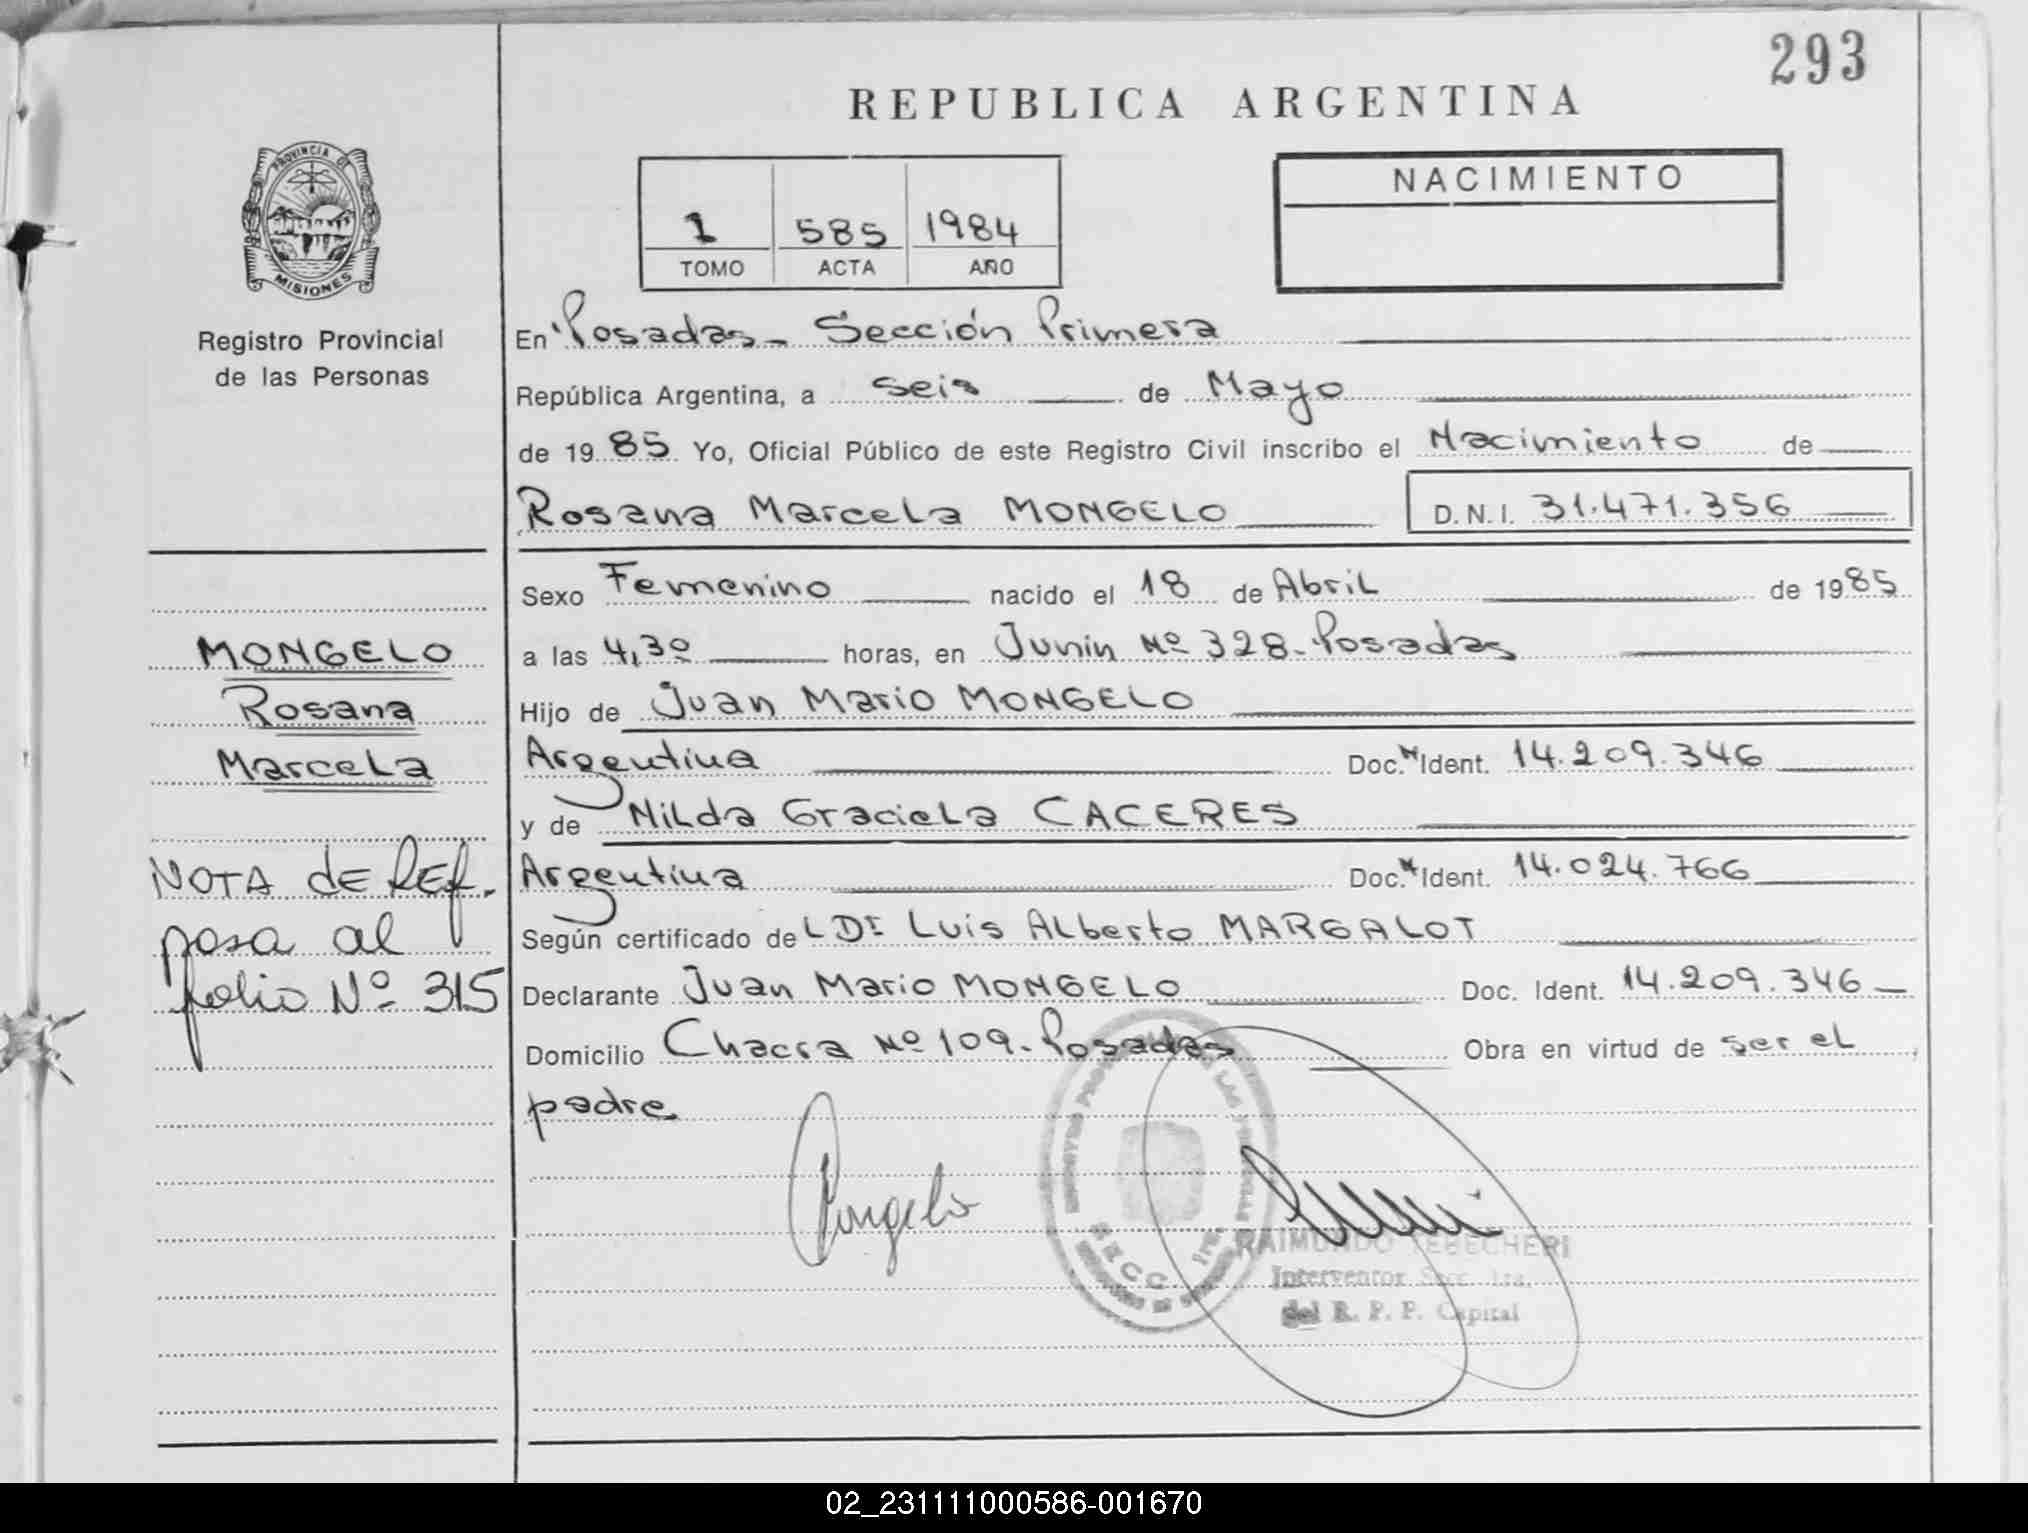 293
REPUBLICA ARGENTINA
PROVINCIA DE
MISIONES
1 585 1984
TOMO ACTA AÑO
NACIMIENTO
Registro Provincial
de las Personas
En Posadas - Sección Primera
República Argentina, a seis de Mayo
de 1985 Yo, Oficial Público de este Registro Civil inscribo el Nacimiento de
Rosana Marcela MONGELO D.N.I. 31.471.356
Sexo Femenino nacido el 18 de Abril de 1985
a las 4,30 horas, en Junín Nº 328 - Posadas
Hijo de Juan Mario MONGELO
Argentina Doc. N Ident. 14.209.346
y de Nilda Graciela CACERES
Argentina Doc. N Ident. 14.024.766
Según certificado de L Dr Luis Alberto MARGALOT
Declarante Juan Mario MONGELO Doc. Ident. 14.209.346
Domicilio Chacra Nº 109 - Posadas Obra en virtud de ser el
padre
MONGELO
Rosana
Marcela
NOTA dE REf.
pasa al
folio Nº 315
RAIMUNDO TEBECHERI
Interventor Secc. 1ra.
del R. P. P. Capital
02_231111000586-001670